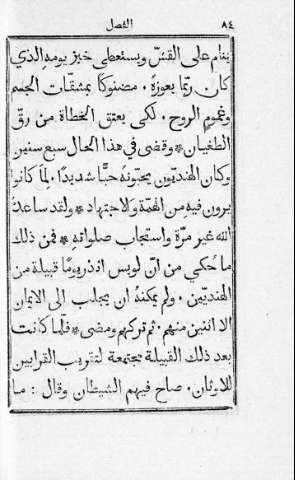 ٨٤ الفصل
ينام على القشّ ويستعطي خبز يومه الذي
كان ربّما يعوزهُ. مضنوكًا بمشقّات الجسم
وغموم الروح. لكي يعتق الخطاة من رقّ
الطغيان * وقضى في هذا الحال سبع سنين
وكان الهنديّون يحبّونهُ حبًّا شديدًا. لما كانوا
يرون فيهِ من الهمّة والاجتهاد * ولقد ساعدهُ
الله غير مرّة واستجاب صلواتهِ * فمن ذلك
ما حُكي من انّ لويس انذر يومًا قبيلة من
الهنديّين. ولم يمكنهُ ان يجلب الى الايمان
الا اثنين منهم. ثم تركهم ومضى * فلما كانت
بعد ذلك القبيلة مجتمعة لتقريب القرابين
للاوثان. صاح فيهم الشيطان وقال: ما